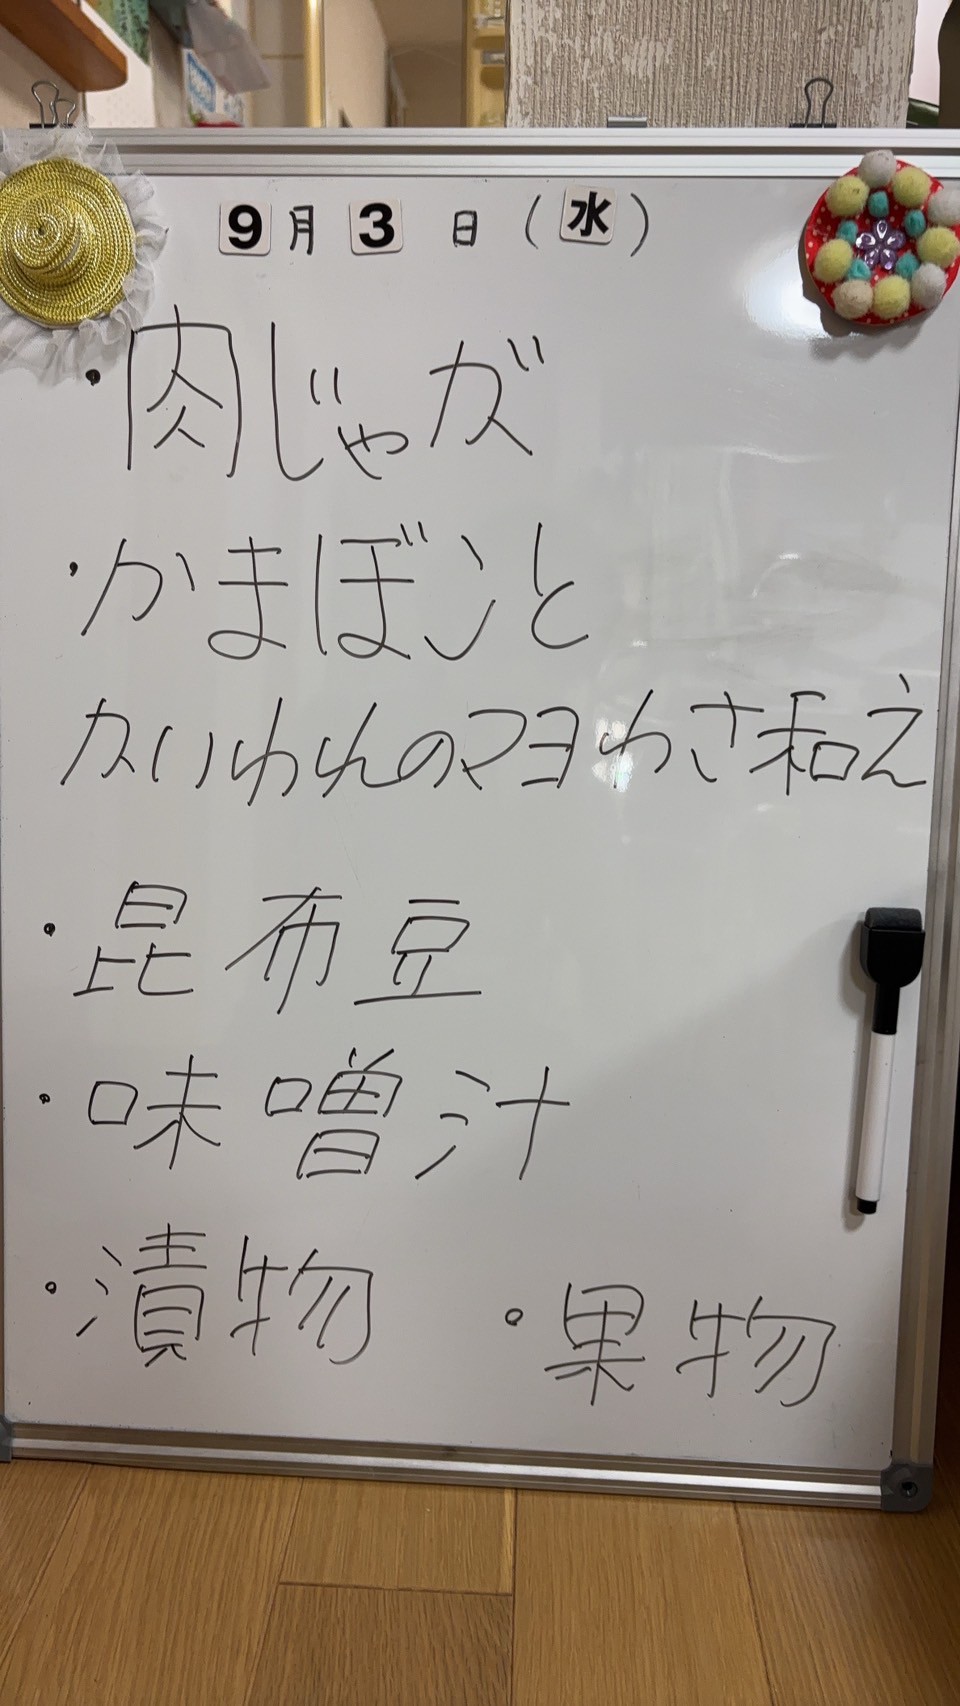 9月3日(水)
・肉じゃが
・かまぼこと
かいわれのマヨわさ和え
・昆布豆
・味噌汁
・漬物 ・果物